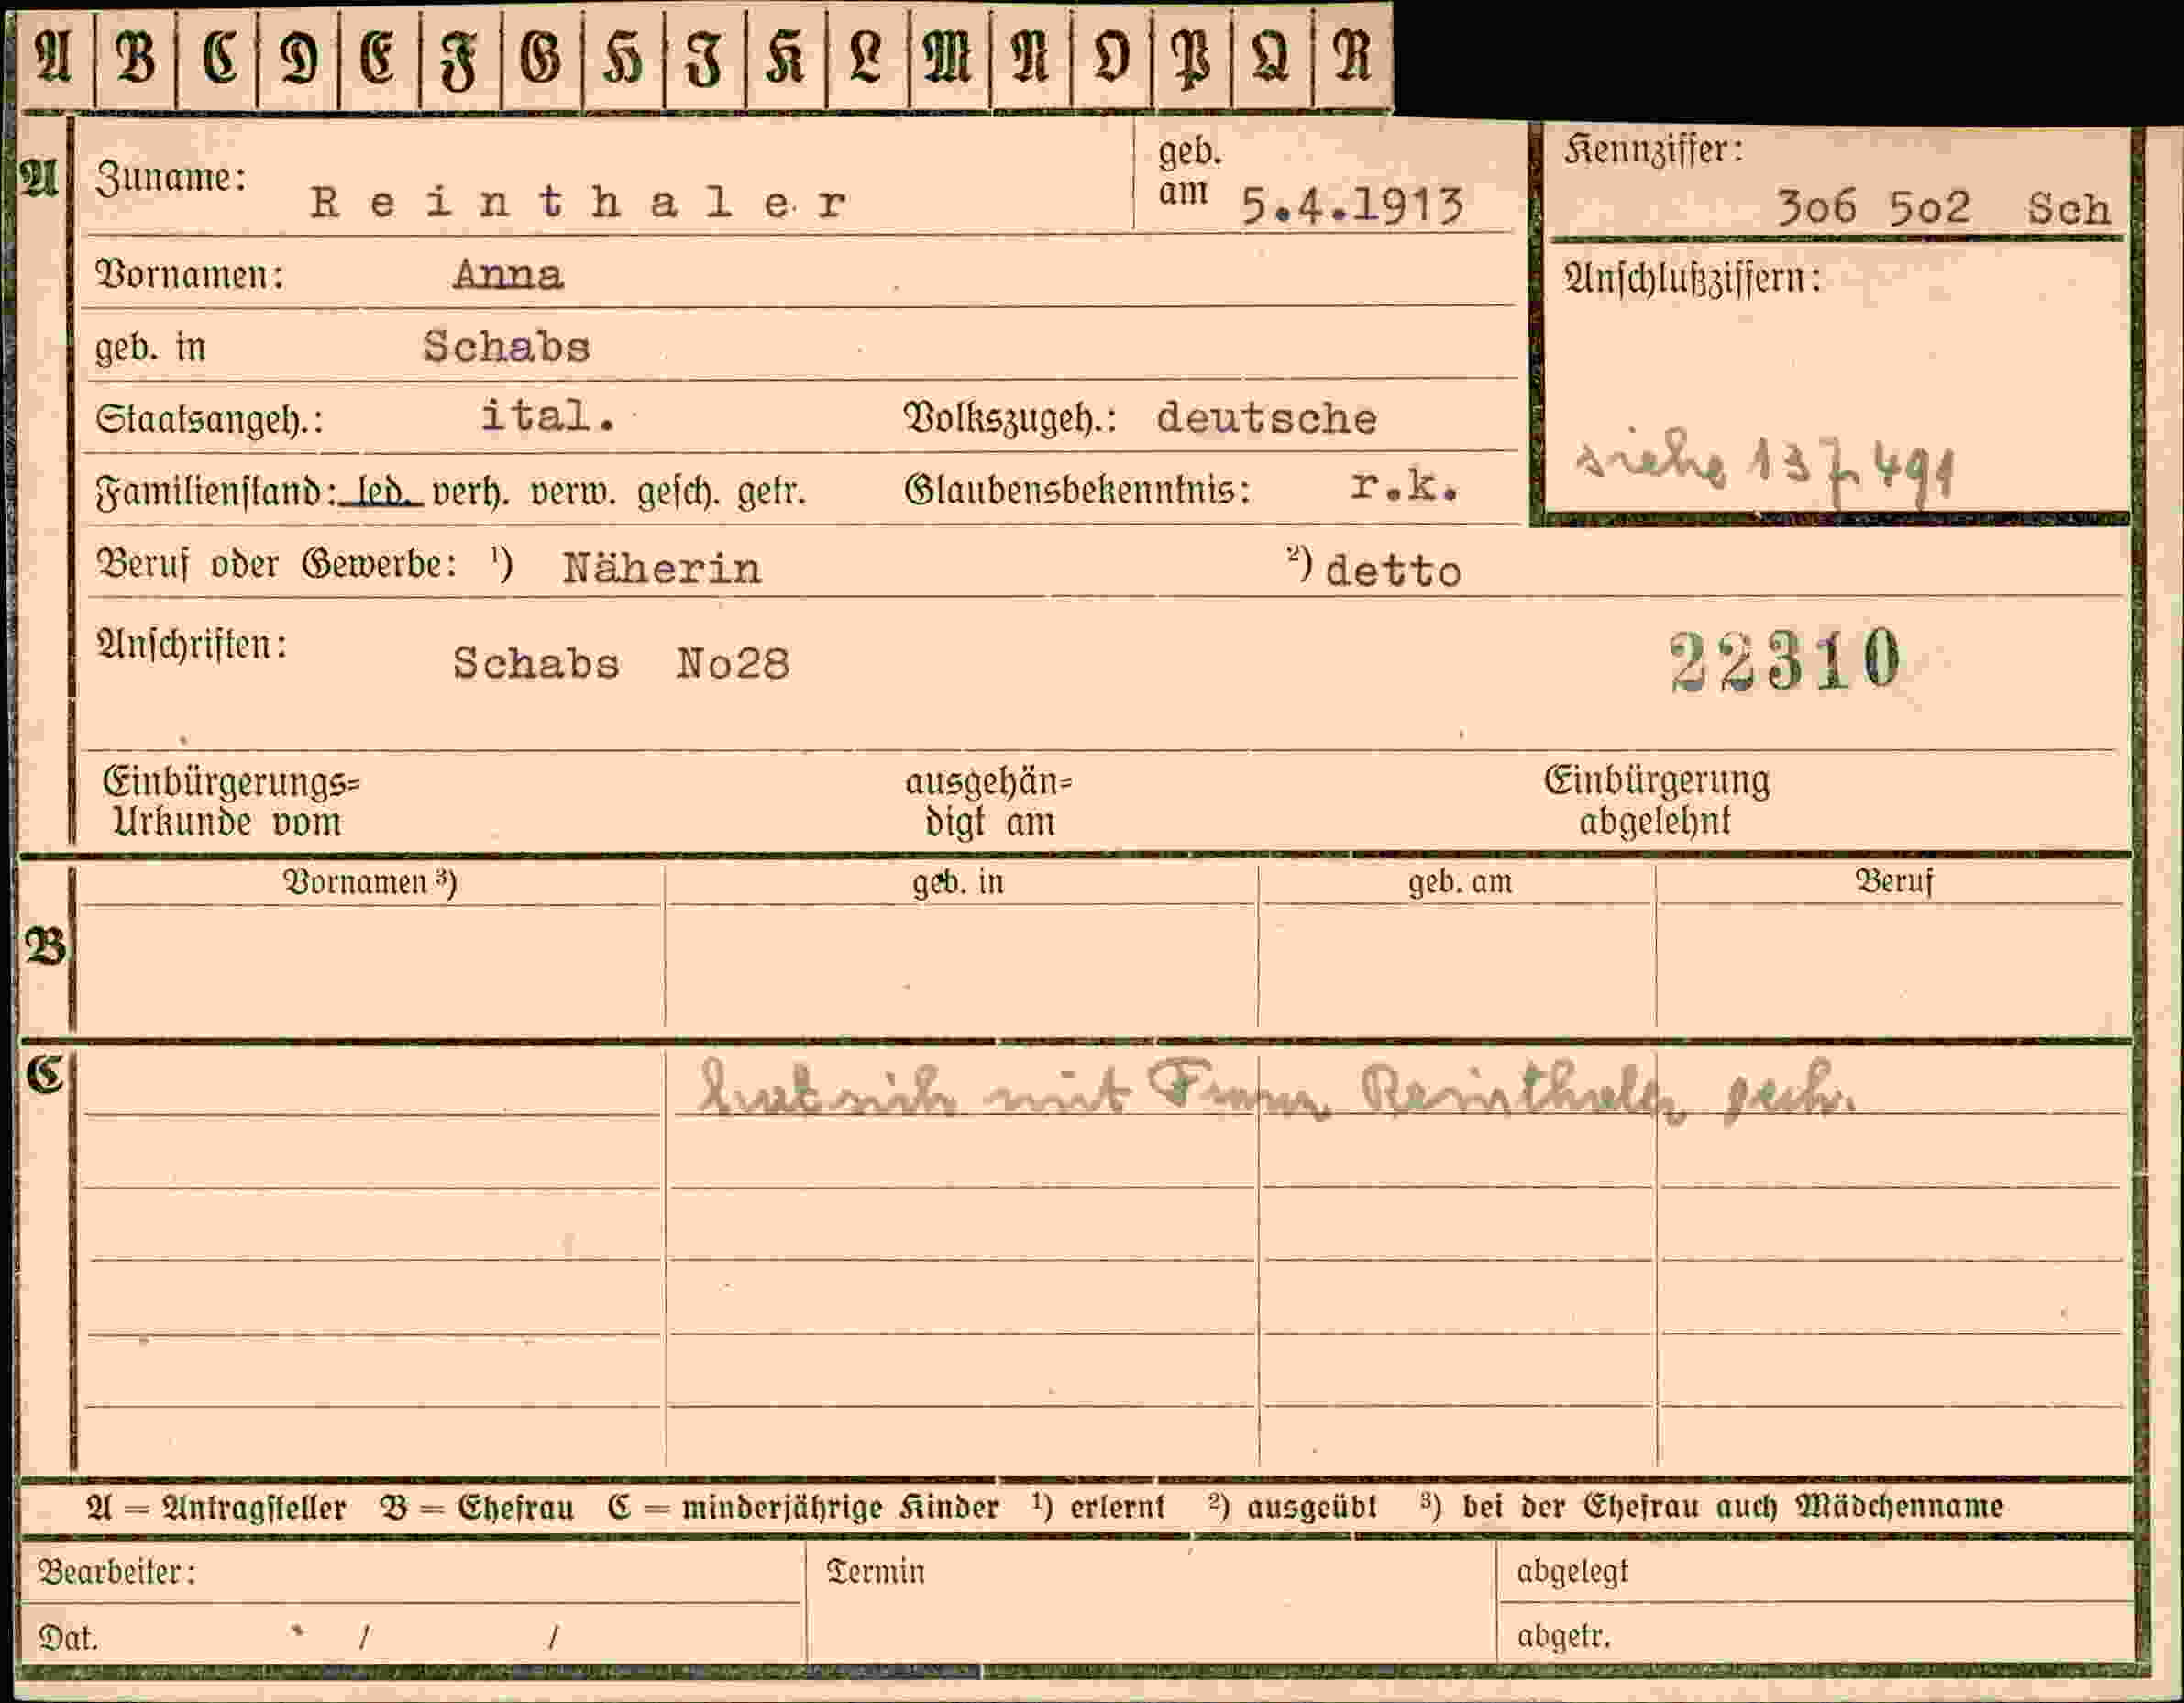 A B C D E F G H I K L M N O P Q R
A Zuname: Reinthaler geb. am 5.4.1913 Kennziffer: 306 502 Sch
Vornamen: Anna Anschlußziffern:
geb. in Schabs
Staatsangeh.: ital. Volkszugeh.: deutsche
siehe 137 491
Familienstand: led. verh. verw. gesch. getr. Glaubensbekenntnis: r.k.
Beruf oder Gewerbe: ¹) Näherin ²) detto
Anschriften: Schabs No28 22310
Einbürgerungs= ausgehän= Einbürgerung
Urkunde vom digt am abgelehnt
Vornamen ³) geb. in geb. am Beruf
B
C hat sich mit Franz Reinthaler
A = Antragsteller B = Ehefrau C = minderjährige Kinder ¹) erlernt ²) ausgeübt ³) bei der Ehefrau auch Mädchenname
Bearbeiter: Termin abgelegt
Dat. / / abgetr.